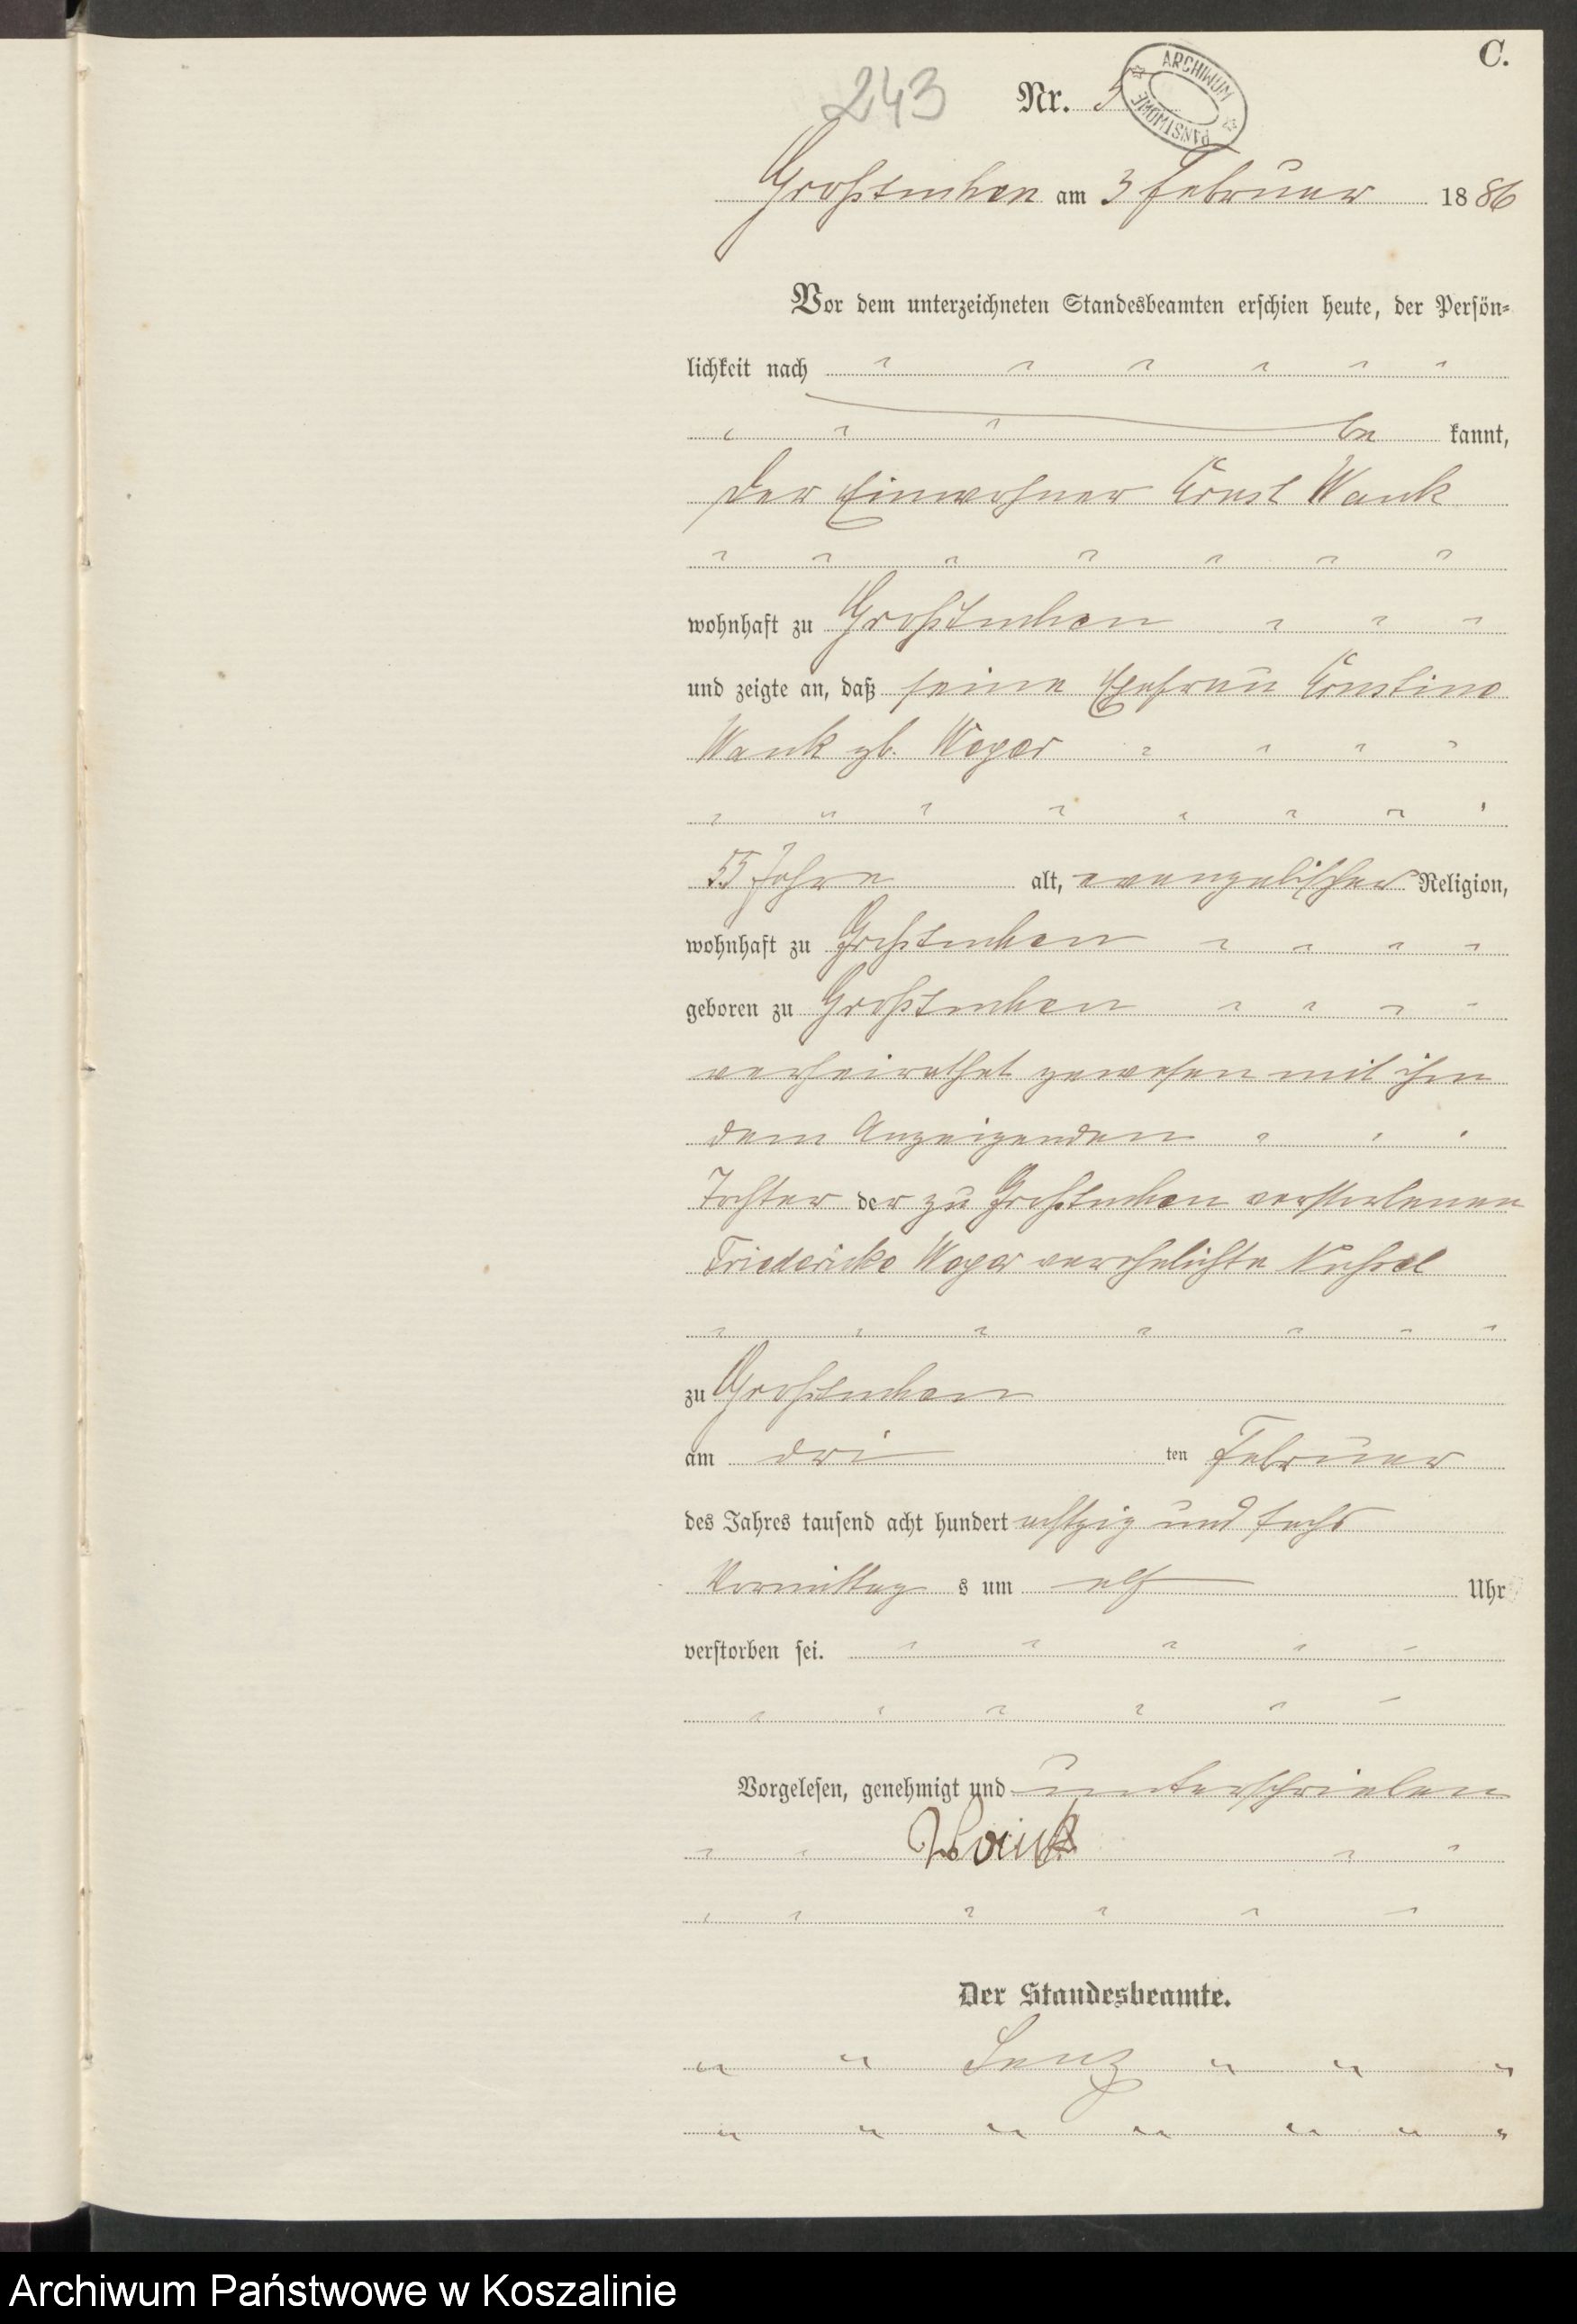 C.
243
Nr. 5
ARCHIWUM PAŃSTWOWE
Großtuchen am 3 Februar 1886
Vor dem unterzeichneten Standesbeamten erschien heute, der Persön-
lichkeit nach
be kannt,
der Einwohner Ernst Wank
wohnhaft zu Großtuchen
und zeigte an, daß seine Ehefrau Ernstine
Wank gb. Weger
55 Jahre alt, evangelischer Religion,
wohnhaft zu Großtuchen
geboren zu Großtuchen
verheirathet gewesen mit ihm
dem Anzeigenden
Tochter der zu Großtuchen verstorbenen
Friedericke Weger verehelichte
zu Großtuchen
am dri ten Februar
des Jahres tausend acht hundert achtzig und sechs
Vormittag s um elf Uhr
verstorben sei.
Vorgelesen, genehmigt und unterschrieben
Wank
Der Standesbeamte.
Lenz
Archiwum Państwowe w Koszalinie